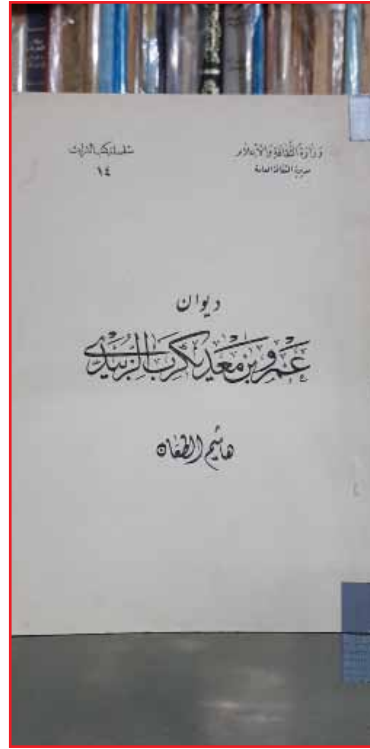 وزارة الثقافة والإعلام
مديرية الثقافة العامة
سلسلة كتب التراث
١٤
ديوان
عمرو بن معديكرب الزبيدي
هاشم الطعان